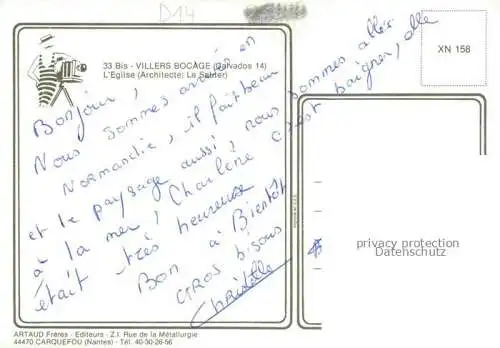 D14
33 Bis - VILLERS BOCAGE (Calvados 14)
L'Eglise (Architecte: Le Sauter)
XN 158
Bonjour,
Nous sommes arrivés en
Normandie, il fait beau
et le paysage aussi, nous sommes allés
à la mer, Charlène s'est baigner, elle
était très heureuse
Bon à Bientôt
GROS bisous
Christelle
privacy protection
Datenschutz
ARTAUD Frères - Editeurs - Z.I. Rue de la Métallurgie
44470 CARQUEFOU (Nantes) - Tél. 40-30-26-56